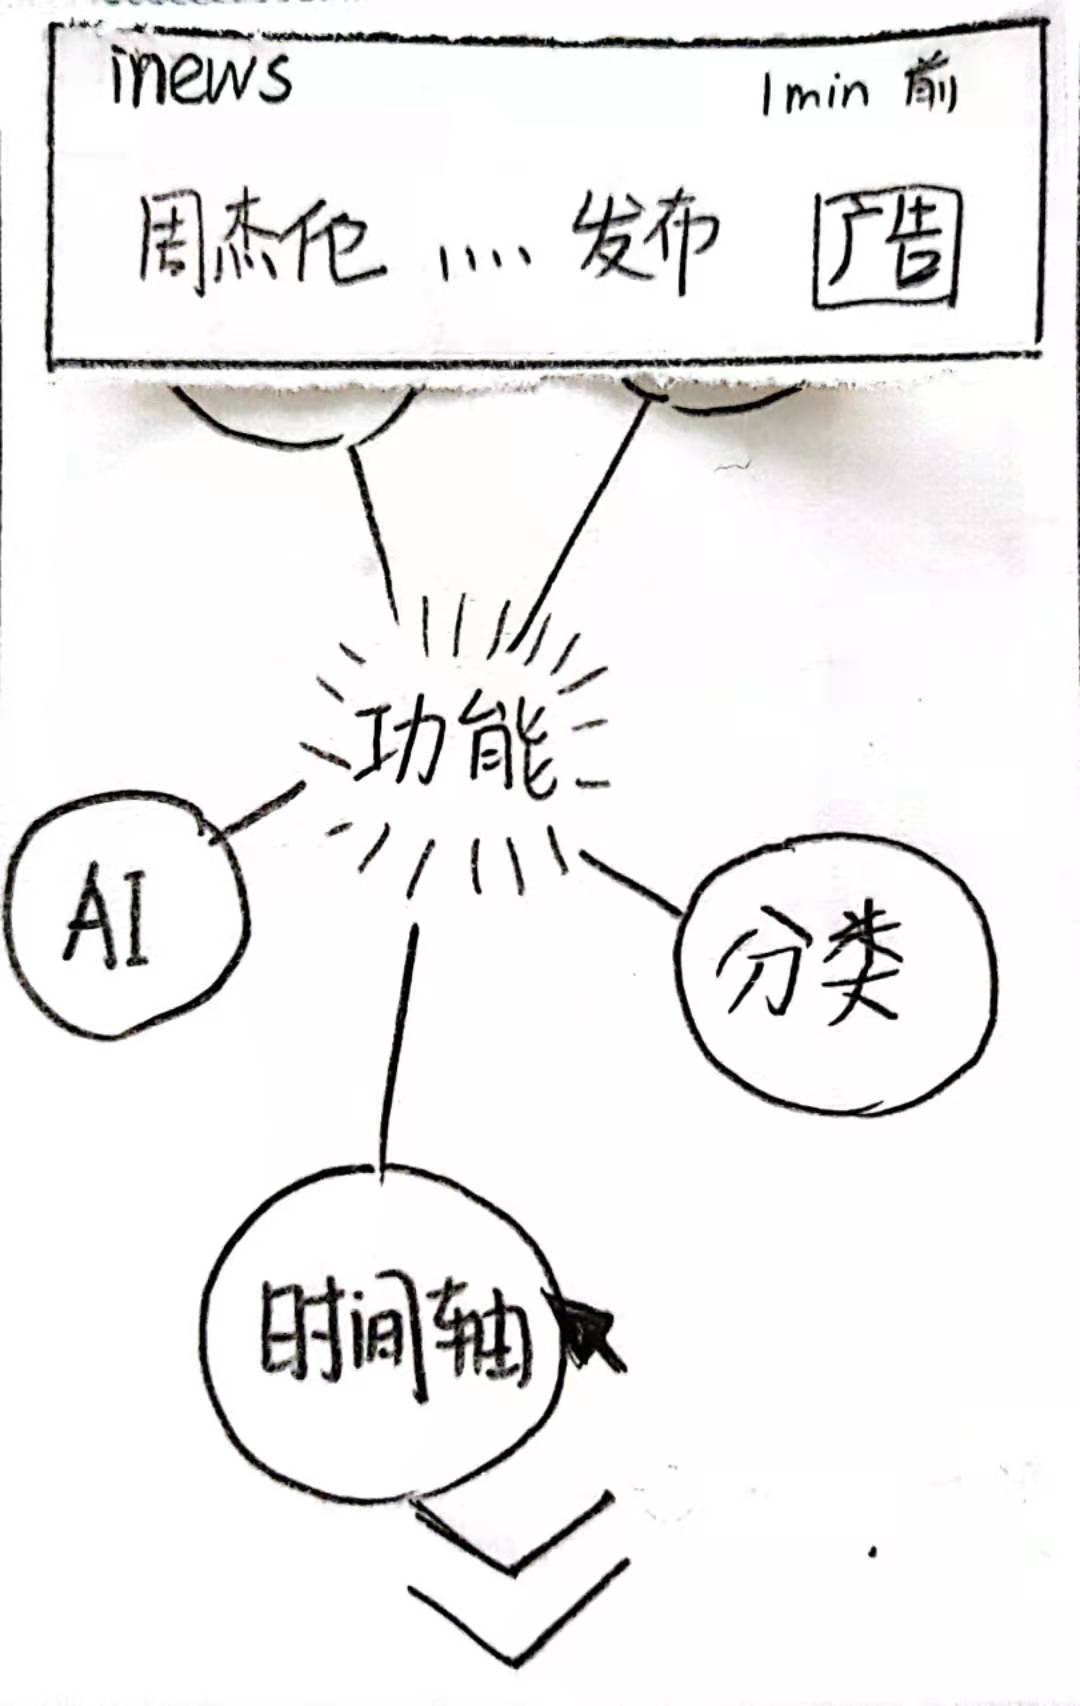 inews
1min 前
周杰伦 .... 发布 广告
功能
AI
分类
时间轴